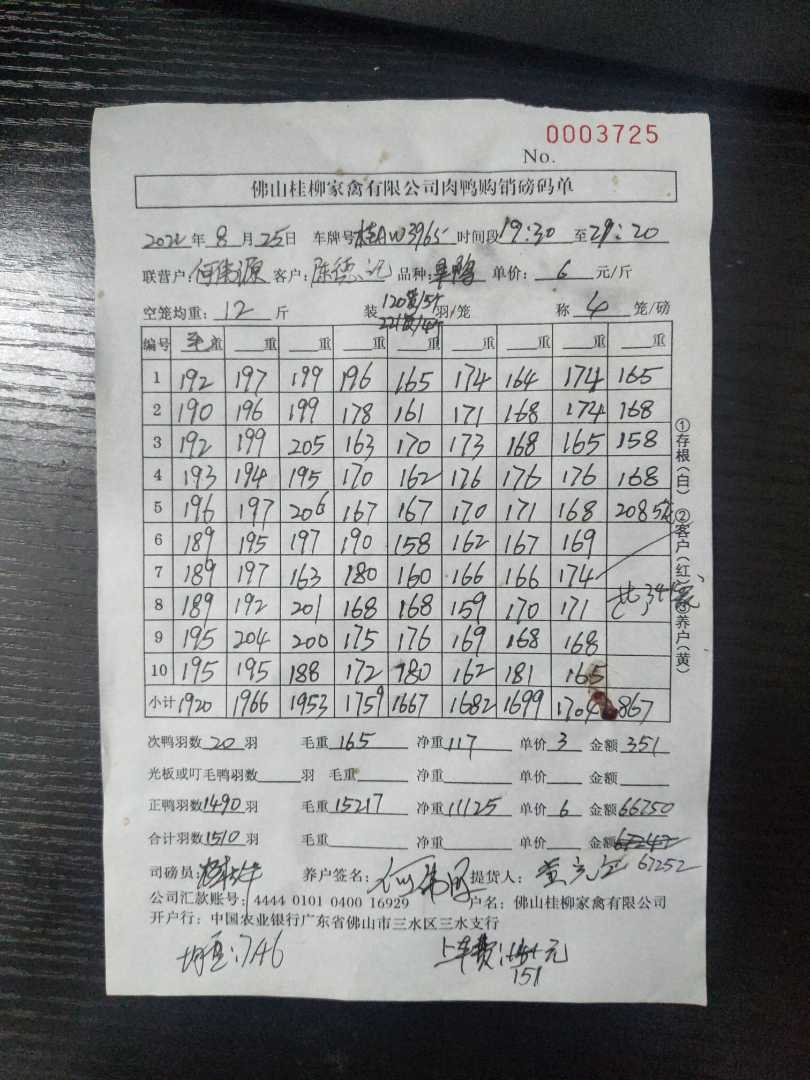 0003725
No.
佛山桂柳家禽有限公司肉鸭购销磅码单
2022年8月25日 车牌号桂AW3965 时间段19:30至21:20
联营户: 客户:陈德 品种: 鸭 单价: 6 元/斤
空笼均重: 12 斤 装 120/5 221/4 羽/笼 称 4 笼/磅
编号 重 重 重 重 重 重 重 重
1 192 197 199 196 165 174 164 174 165
2 190 196 199 178 161 171 168 174 168
3 192 199 205 163 170 173 168 165 158
4 193 194 195 170 162 176 176 176 168
5 196 197 206 167 167 170 171 168 208 5
6 189 195 197 190 158 162 167 169
7 189 197 163 180 160 166 166 174
8 189 192 201 168 168 159 170 171 共341
9 195 204 200 175 176 169 168 168
10 195 195 188 172 180 162 181 165
小计 1920 1966 1953 1759 1667 1682 1699 1704 867
①存根(白) ②客户(红) ③养户(黄)
次鸭羽数 20 羽 毛重 165 净重 117 单价 3 金额 351
光板或叮毛鸭羽数 羽 毛重 净重 单价 金额
正鸭羽数 1490 羽 毛重 15217 净重 11125 单价 6 金额 66750
合计羽数 1510 羽 毛重 净重 单价 金额
67252
司磅员: 养户签名: 提货人:
公司汇款账号: 4444 0101 0400 16929 户名: 佛山桂柳家禽有限公司
开户行: 中国农业银行广东省佛山市三水区三水支行
均重:7.46 上车费: 元
151